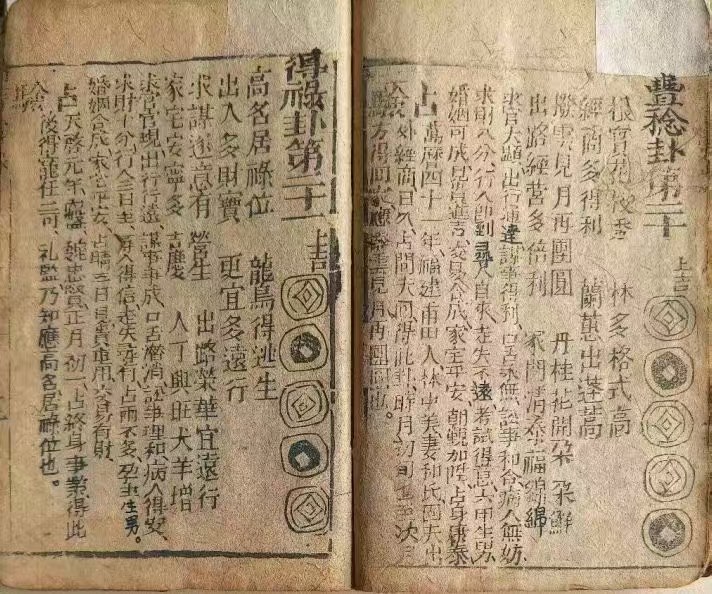 豐稔卦第二十
上吉
林多格式高
經商多得利 蘭蕙出蓬蒿
撥雲見月再團圓 丹桂花開朵朵鮮
出路經營多倍利 家門清泰福綿綿
求官大顯出行通達謀事得利口舌無訟事和合病人無妨
求財八分行人即到尋人自來走失不遠考試得喜六甲生男
婚姻可成見貴進喜交易合成家宅平安朝覲加陞占身康泰
占 萬曆四十一年福建莆田人林中美妻和氏因夫出
外經商日久占問夫回得此卦時月初旬至次
驗 方得回應雲見月再團圓也。
得祿卦第二十一
上吉
高名居祿位 龍馬得逃生
出入多財寶 更宜多遠行
求謀遂意有營生 出路榮華宜遠行
家宅安寧多吉慶 人丁興旺犬羊增
求官官現出行行遠謀事事成口舌消訟事理和病人得安
求財十分行人三日至尋人得信走失有占雨不多孕生生男。
婚姻合成家宅平安占晴三日見貴重用交易有財
占 天啓元年魏忠賢正月初一占終身事業得此
驗 後得寵任司礼監乃知應高名居祿位也。